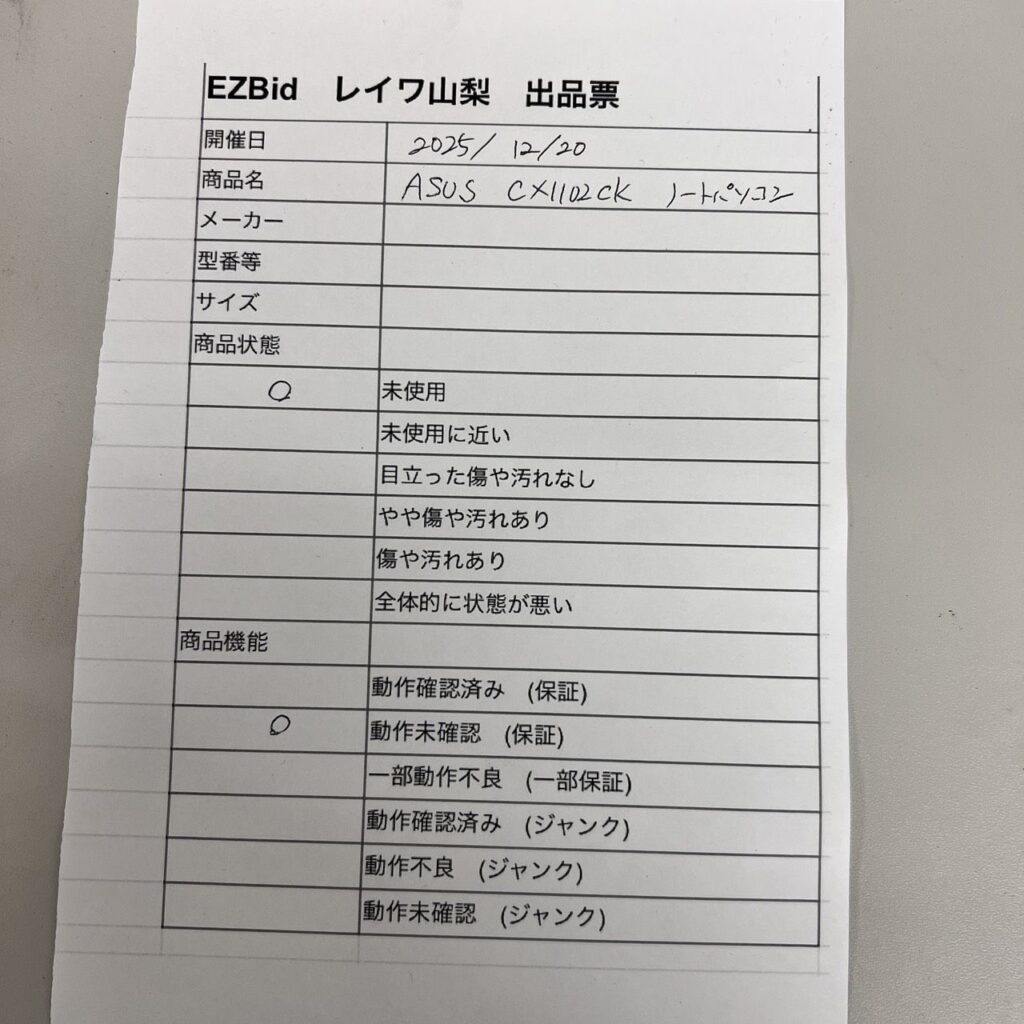 EZBid レイワ山梨 出品票
開催日 2025/12/20
商品名 ASUS CX1102CK ノートパソコン
メーカー
型番等
サイズ
商品状態
○ 未使用
未使用に近い
目立った傷や汚れなし
やや傷や汚れあり
傷や汚れあり
全体的に状態が悪い
商品機能
動作確認済み (保証)
○ 動作未確認 (保証)
一部動作不良 (一部保証)
動作確認済み (ジャンク)
動作不良 (ジャンク)
動作未確認 (ジャンク)